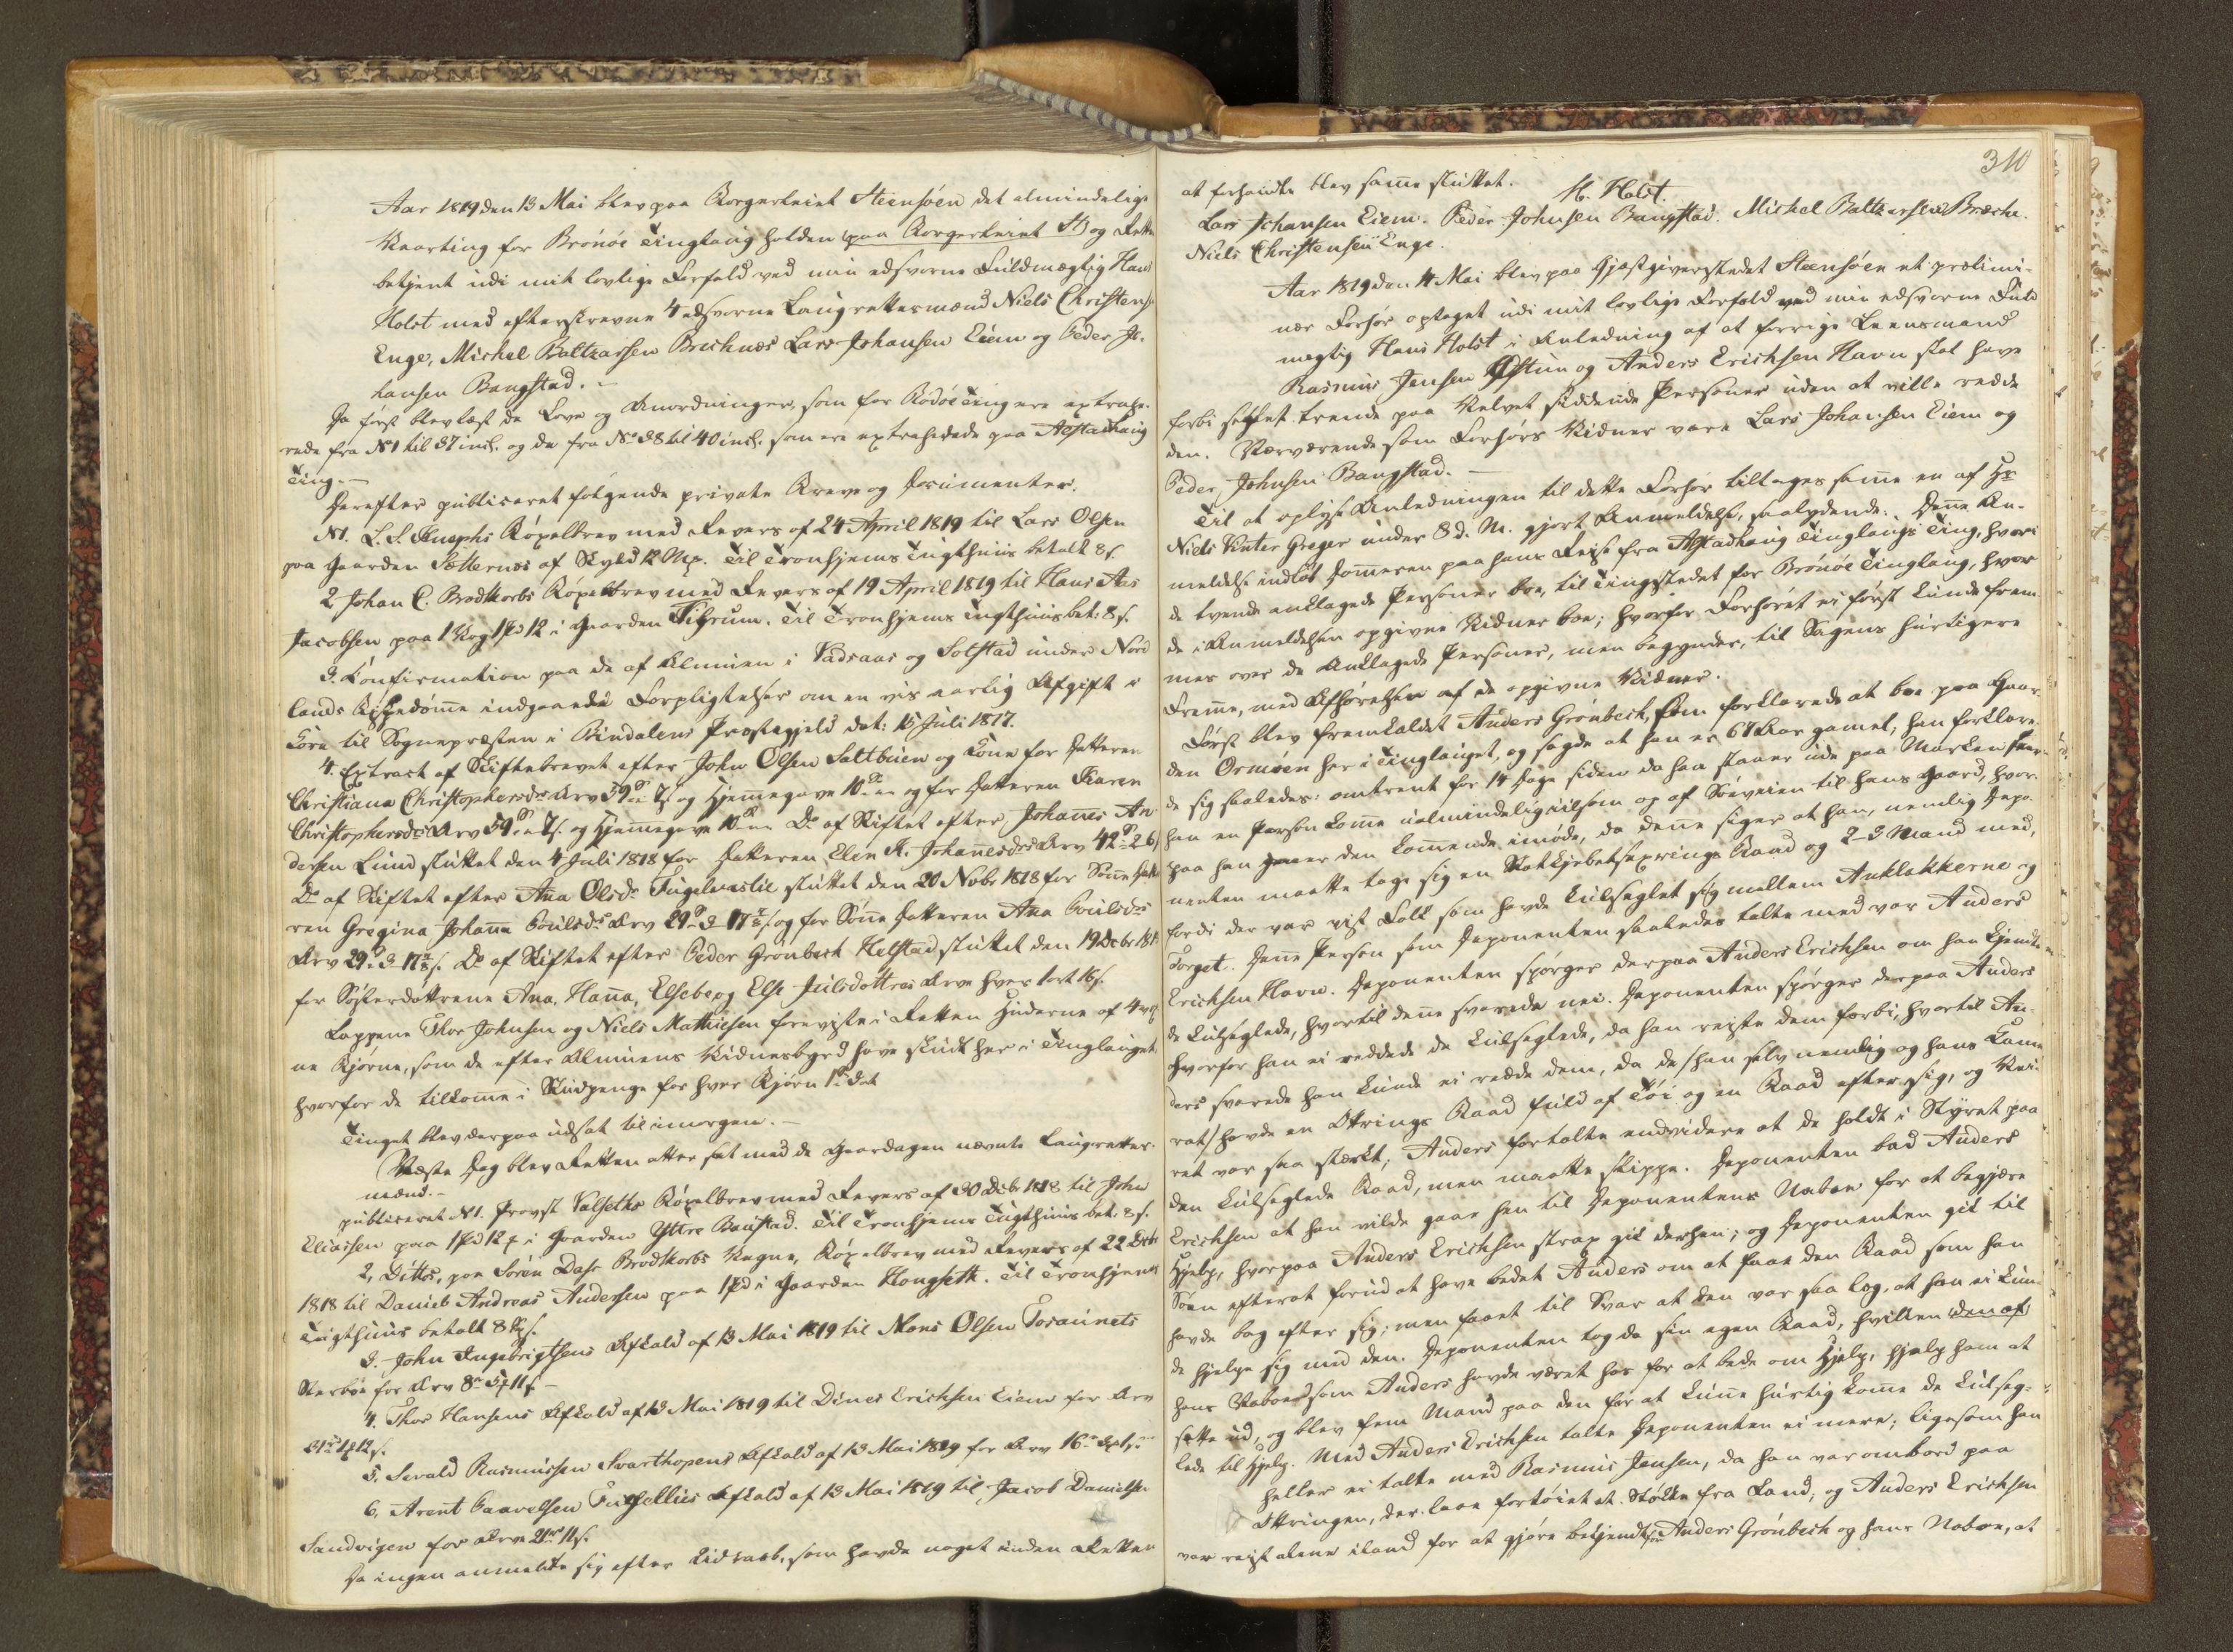 Aar 1819 den 13 Mai blev paa Borgerleiet Steensöen det almindelige
Vaarting for Brönöe Tinglaug holden (paa Borgerleiet St) og Retten
betjent udi mit lovlige Forfald ved min edsvorne Fuldmægtig Hans
Holst med efterskrevne 4 edsvorne Laugrettesmænd Niels Christens:
Enge, Michel Baltzarsen Brechnæs Lars Johansen Eiem og Peder Jo-
hansen Bangstad. –
Da först blev læst de Love og Anordninger, som for Rödöe Ting ere extrahe-
rede fra No 1 til 37 incl. og de fra No 38 til 40 incl. som ere extraherede paa Alstadhaug
Ting. –
Derefter publiceret fölgende private Breve og Documenter.
No 1. L. L. Knophs Köpebrev med Revers af 24 April 1819 til Lars Olsen
paa Gaarden Sætternæs af Skyld 12 Mk. Til Tronhjems Tugthuus betalt 8 s.
2 Johan C. Brodtkorbs Köpebrev med Revers af 19 April 1819 til Hans Aas
Jacobsen paa 1 Vog 1 Pd 12 i Gaarden Tilrum. Til Tronhjems Tugthuus bet: 8 s.
3. Confirmation paa de af Almuen i Vadsaas og Solstad under Nord
lands Bispedömme indgaaede Forpligtelser om en vis aarlig Afgift i
Korn til Sognepræsten i Bindalens Præstegjeld dat: 15 Juli 1817.
4. Extract af Skiftebrevet efter John Olsen Saltbuen og Kone for Datteren
Christiana Christophersdr Arv 59 7 s og Hjemmegave 10 og for Datteren Karen
Christophersdr Arv 59 7 s. og Hjemmegave 10 Do af Skiftet efter Johannes An
dersen Lund sluttet den 4 Juli 1818 for Datteren Elen K. Johannesdr Arv 42 2 6
Do af Skiftet efter Ana Olsdr Fugelvaslie sluttet den 20 Novbr 1818 for Sönne Datte
ren Gregina Johana Poulsdr Arv 29 3 17 s. og for Sönne Datteren Ana Poulsdr
Arv 29 3 17 s. Do af Skiftet efter Peder Grönbech Helstad sluttet den 19 Debr 181
for Sösterdöttrene Ana, Hana, Elsebe og Else Juulsdöttres Arv hver 1 ort 16 s.
Lappene Thor Johnsen og Niels Mathiesen foreviste i Retten Huderne af 4
ne Bjørne, som de efter Almuens Vidnesbyrd have skudt her i Tinglauget,
hvorfor de tilkomme i Skudpenge for hver Bjørn 1
Tinget blev derpaa udsat til imorgen. –
Næste Dag blev Retten atter sat med de Gaardagen nævnte Laugrettes-
mænd. –
publiceret No 1. Provst Valseths Köpebrev med Revers af 30 Debr 1818 til John
Eliassen paa 1 Pd 12 i Gaarden Yttre Baustad. Til Tronhjems Tugthuus bet: 8 s.
2, Dittos, paa Sören Dass Brodtkorbs Vegne, Köpebrev med Revers af 22 Debr
1818 til Daniel Andreas Andersen paa 1 Pd i Gaarden Hongseth. Til Tronhjems
Tugthuus betalt 8 s.
3. John Ingebrigtsens Afkald af 13 Mai 1819 til Mons Olsen
Sterboe for Arv 8 11 s. –
4. Thor Hansens Afkald af 13 Mai 1819 til Dines Erichsen Eiem for Arv
31 1 12 s.
5. Sevald Rasmussen Svarthopens Afkald af 13 Mai 1819 for Arv 16
6. Arent Paavelsen Afkald af 13 Mai 1819 til Jacob Danielsen
Sandvigen for Arv 21 11 s.
Da ingen anmeldte sig efter Udraab, som havde noget inden Retten
310
at forhandle blev samme sluttet.
H. Holst.
Lars Johansen Eiem. Peder Johnsen Bangstad. Michel Baltzersen Brechn.
Niels Christensen Enge.
Aar 1819 den 14 Mai blev paa Gjæstgiverstedet Steensöen et prælimi-
nær Forhör optaget udi mit lovlige Forfald ved min edsvorne Fuld
mægtig Hans Holst i Anledning af at forrige Lensmand
Rasmus Jensen Østun og Anders Erichsen Havn skal have
forbi seglet trende paa Velvet siddende Personer uden at ville redde
dem. Nærværende som Forhörs Vidner vare Lars Johansen Eiem og
Peder Johnsen Bangstad. –
Til at oplyse Anledningen til dette Forhör tiltages samme en af Hr
Niels Vinter Greger under 8 d. M. gjort Anmeldelse, saalydende: Denne An-
meldelse indlöb Dommeren paa hans Reise fra Alstadhaug Tinglaugs Ting, hvori
de tvende anklagede Personer boe, til Tingstedet for Brönöe Tinglaug, hvor
de i Anmeldelsen opgivne Vidner boe; hvorfor Forhöret ei först kunde frem-
mes over de Anklagede Personer, men begynder, til Sagens hurtigere
Fremme, med Afhörelsen af de opgivne Vidner.
Först blev fremkaldet Anders Grönbech, som forklarede at boe paa Gaar-
den Ormöen her i Tinglauget, og sagde at han er 67 Aar gamel, han forklare-
de sig saaledes: omtrent for 14 Dage siden da han staaer ude paa Marken saae
han en Person komme ualmindelig iilsom op af Söeveien til hans Gaard, hvor-
paa han gaaer den kommende imøde, da denne siger at han, nemlig Depo-
nenten maatte tage sig en Baad og 2–3 Mand med,
fordi der var vist Folk som havde kulseglet sig mellem Anklakkerne og
Torget. Denne Person som Deponenten saaledes talte med var Anders
Erichsen Havn. Deponenten spörger derpaa Anders Erichsen om han kjendte
de kulseglede, hvortil denne svarede nei. Deponenten spörger derpaa Anders
hvorfor han ei reddede de kulseglede, da han reiste dem forbi, hvortil An-
ders svarede han kunde ei redde dem, da de /han selv nemlig og hans Kame
rat/ havde en Ottrings Baad fuld af Töi og en Baad efter sig, og Vei-
ret var saa stærkt; Anders fortalte endvidere at de holdt i Styret paa
den kulseglede Baad, men maatte slippe. Deponenten bad Anders
Erichsen at han vilde gaae hen til Deponentens Naboe for at begjere
Hjelp, hvorpaa Anders Erichsen strax gik derhen; og Deponenten gik til
Söen efterat forud at have bedet Anders om at faae den Baad som han
havde bag efter sig; men faaet til Svar at den var saa læg, at han ei kun-
de hjelpe sig med den. Deponenten tog da sin egen Baad, hvilken (den af)
hans Naboer som Anders havde været hos for at bede om Hjelp, hjalp ham at
sette ud, og blev fem Mand paa den for at kunne hurtig komme de kulseg-
lede til Hjelp. Med Anders Erichsen talte Deponenten ei mere; ligesom han
heller ei talte med Rasmus Jensen, da han var ombord paa
Ottringen, der laae fortöiet et Stökke fra Land; og Anders Erichsen
var reist alene iland for at gjöre bekjendt for Anders Grönbech og hans Naboe, at